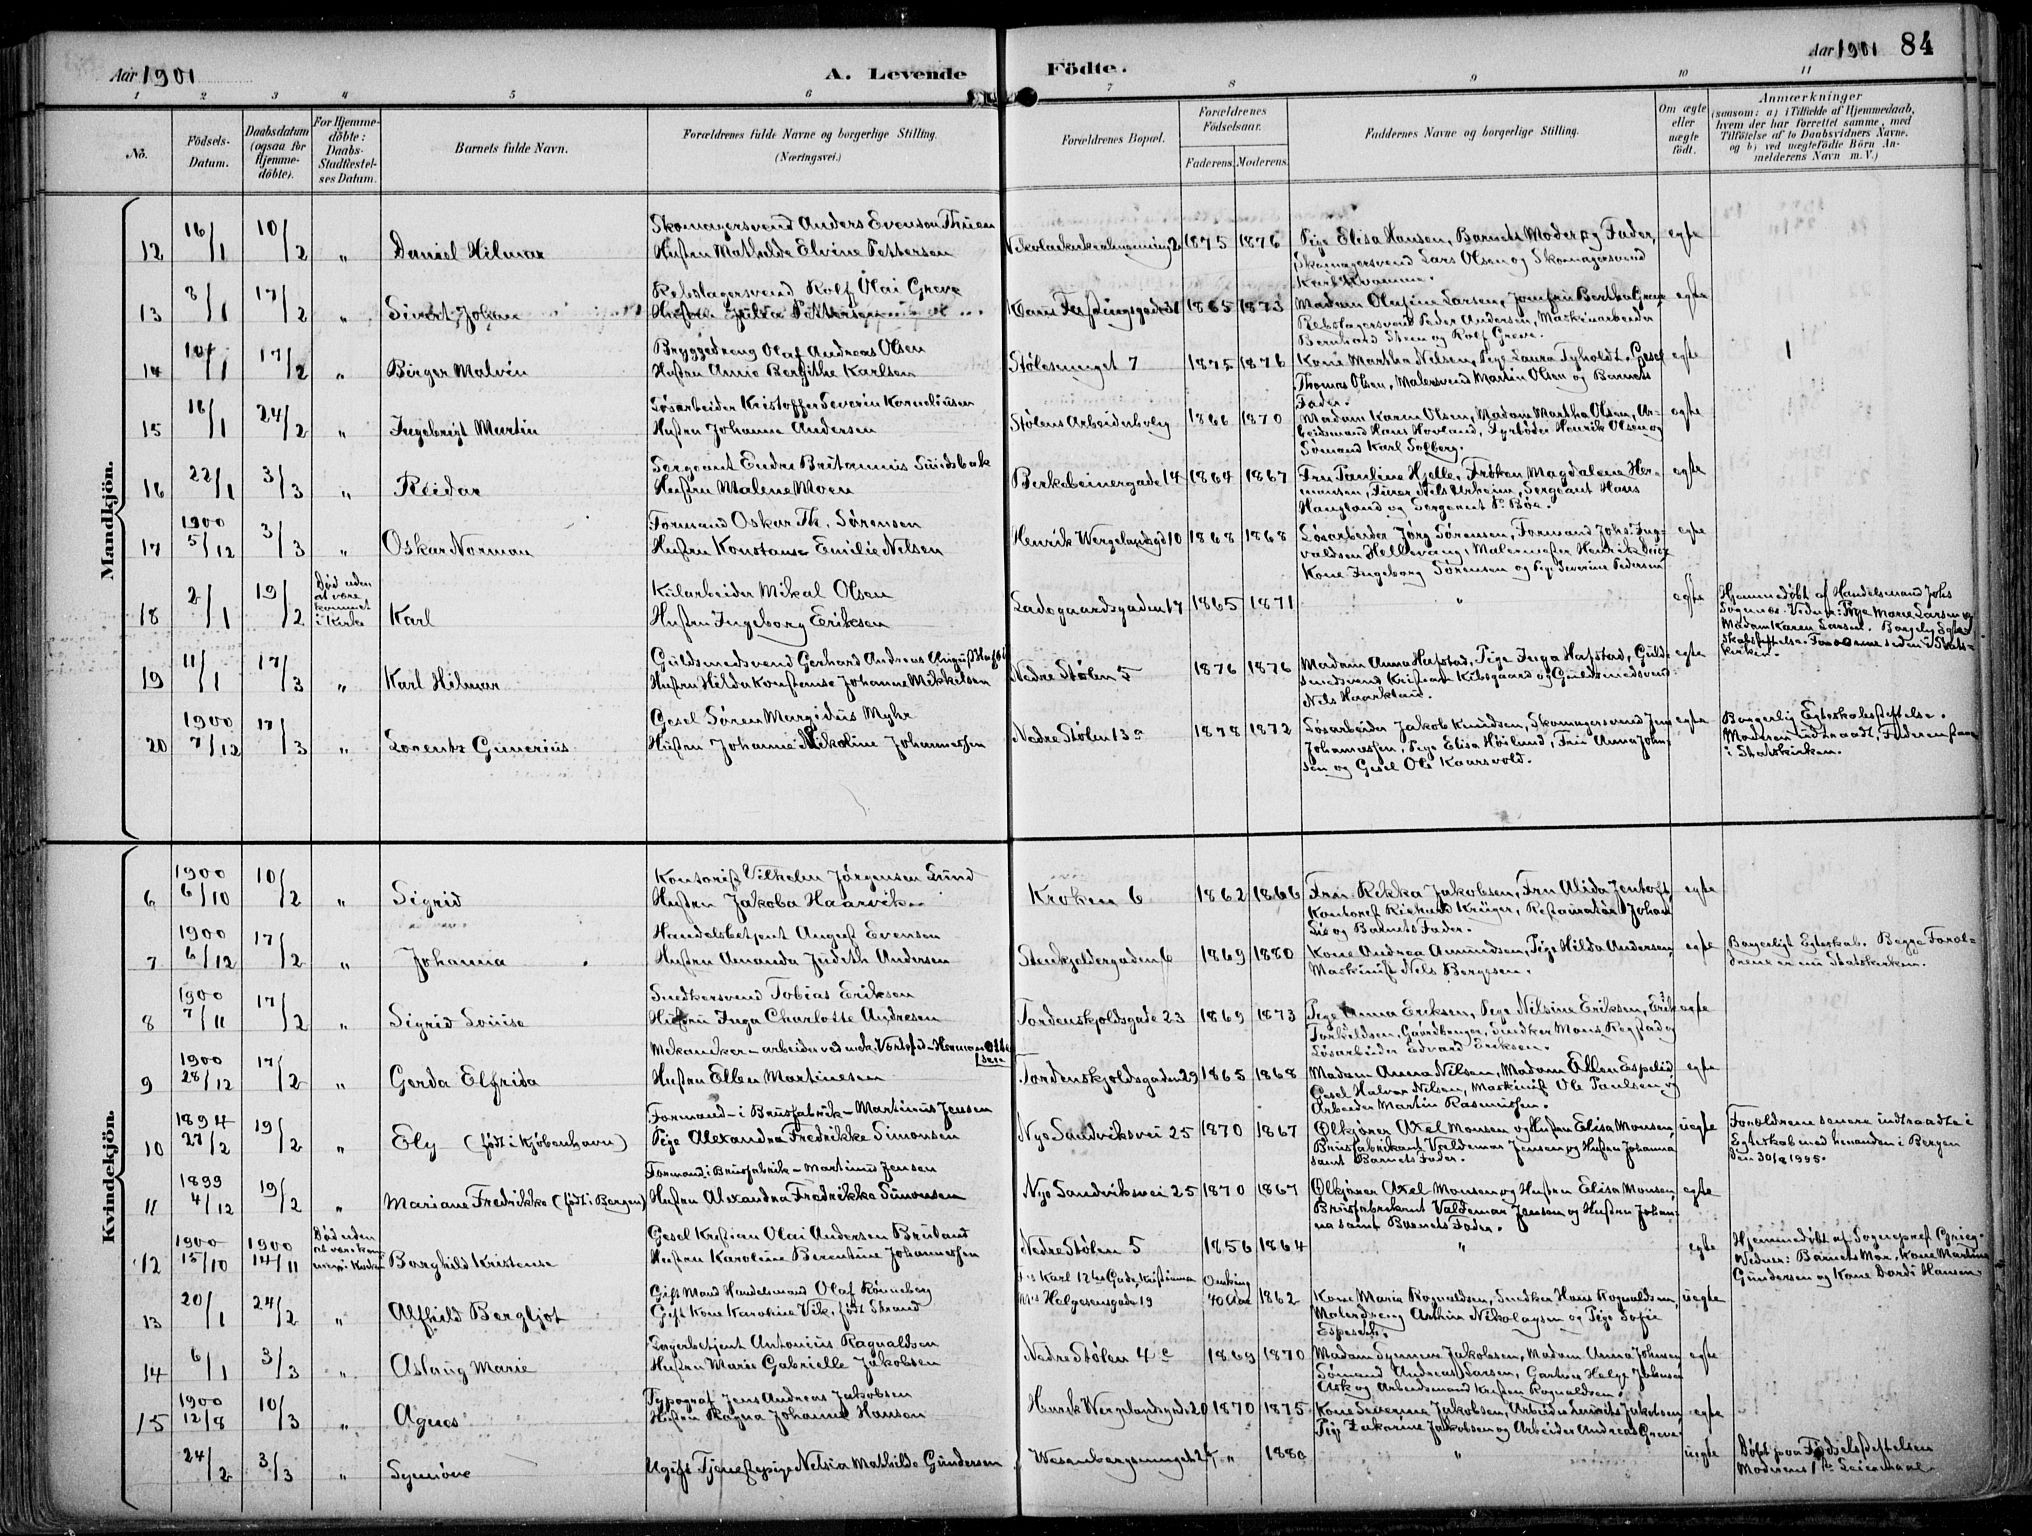 Aar 1901
A. Levende Födte.
Aar 1901 84
1 2 3 4 5 6 7 8 9 10 11
No.
Födsels-Datum.
Daabsdatum (ogsaa for Hjemme-döbte).
For Hjemme-döbte: Daabs-Stadfæstel-ses Datum.
Barnets fulde Navn.
Forældrenes fulde Navne og borgerlige Stilling.
(Næringsvei.)
Forældrenes Bopæl.
Forældrenes Födselsaar.
Faderens. Moderens.
Faddernes Navne og borgerlige Stilling.
Om ægte eller uægte födt.
Anmærkninger
(saasom: a) i Tilfælde af Hjemmedaab, hvem der har forrettet samme, med Tilföielse af to Daabsvidners Navne. og b) ved uægtefödte Börn Anmelderens Navn m. V.)
Mandkjön.
12 16/1 10/2 „ Daniel Hilmar
Skomagersvend Anders Evensen Thuen
Hustru Mathilde Elvine Pettersen
1875 1876
Pige Elisa Hansen, Barnets Moder og Fader,
Skomagersvend Lars Olsen og Skomagersvend
Karl Kvamme.
egte
13 8/1 17/2 „ Sivert Johan
Rebslagersvend Rolf Olai Greve
Hustru Julia Pettersen
1865 1873
Madam Olufine Larsen, Jomfru Bertha Greve
Rebslagersvend Peder Andersen, Maskinarbeider
Bernhard Steen og Rolf Greve.
egte
14 10/1 17/2 „ Birger Malvin
Bryggedreng Olaf Andreas Olsen
Hustru Anne Bergithe Karlsen
Stølesmuget 7
1875 1876
Kone Martha Nilsen, Pige Laura Tyholdt, Gesel
Thomas Olsen, Malersvend Martin Olsen og Barnets
Fader.
egte
15 16/1 24/2 „ Ingebrigt Martin
Løsarbeider Kristoffer Severin Korneliusen
Hustru Johanne Andersen
Stølens Arbeiderbolig
1866 1870
Madam Karen Olsen, Madam Martha Olsen, Ar-
beidsmand Hans Hovland, Fyrbøder Henrik Olsen og
Sømand Karl Solberg.
egte
16 22/1 3/3 „ Reidar
Sergeant Endre Britannus Sundsbak
Hustru Malene Moen
Berkebeinergade 14
1864 1867
Fru Pauline Hjelle, Frøken Magdalene Her-
mansen, Furer Nils Urheim, Sergeant Hans
Haugland og Sergeant P. Bøe.
egte
17 1900 5/12 3/3 „ Oskar Norman
Formand Oskar Th. Sørensen
Hustru Konstanse Emilie Nilsen
Henrik Wergelandsgd 10
1868 1868
Løsarbeider Jørg Sørensen, Formand Johs. Ing-
valdsen Hellevang, Malermester Henrik
Kone Ingeborg Sørensen og Pige Severine Pedersen
egte
18 2/1 19/2 Død uden at være kommet i Kirke Karl
Kularbeider Mikal Olsen
Hustru Ingeborg Eriksen
Ladegaardsgaden 17
1865 1871
„
egte
Hjemmedøbt af Handelsmand Johs
Sognnæs. Vidner: Pige Marie Larsen og
Madam Karen Larsen. Borgerlig Egte-
skabsstiftelse. Forældrene siden i Stats-
kirken.
19 11/1 17/3 „ Karl Hilmar
Guldsmedsvend Gerhard Andreas August Hafstad
Hustru Hilda Konstanse Johanne Mikkelsen
Nedre Stølen 5
1876 1876
Madam Anna Hafstad, Pige Inga Hafstad, Guld-
smedsvend Kristian Kibsgaard og Guldsmedsvend
Nils Haarklau.
egte
20 1900 7/12 17/3 „ Lorentz Gunerius
Gesel Søren Margidus Myhr
Hustru Johanne Nikoline Johannessen
Nedre Stølen 13 a
1878 1872
Løsarbeider Jakob Knudsen, Skomagersvend Jens
Johannessen, Pige Elisa Høilund, Fru Anna John-
sen og Gesel Ole Kaarsvold.
egte
Borgerlig Egteskabsstiftelse.
Moderen udtraadt, Faderen staar
i Statskirken.
Kvindekjön.
6 1900 6/10 10/2 „ Sigrid
Kontorist Vilhelm Jørgensen Lund
Hustru Jakoba Haarvik
Kroken 6
1862 1866
Fru Rikka Jakobsen, Fru Alida Jentoft,
Kontorist Richard Krüger, Restauratør Johan
Lie og Barnets Fader.
egte
7 1900 6/12 17/2 „ Johanna
Handelsbetjent August Evensen
Hustru Amanda Judith Andersen
Stenkjeldergaden 6
1869 1880
Kone Andrea Amundsen, Pige Hilda Andersen,
Maskinist Nels Bergesen.
egte
Borgerligt Egteskab. Begge Foræl-
drene er nu Statskirken.
8 1900 7/11 17/2 „ Sigrid Louise
Snedkersvend Tobias Eriksen
Hustru Inga Charlotte Andresen
Tordenskjoldsgade 23
1869 1873
Pige Anna Eriksen, Pige Nilsine Eriksen, Erik
Torkeldsen, Gaardbruger, Snedker Mons Rogstad og
Løsarbeider Edvard Eriksen.
egte
9 1900 28/12 17/2 „ Gerda Elfrida
Mekaniker - arbeider ved mek. Værksted - Herman Olsen
Hustru Ellen Martinesen
Tordenskjoldsgaden 29
1865 1868
Madam Anna Nilsen, Madam Ellen Espelid,
Gesel Halvar Nilsen, Maskinist Ole Paulsen og
Arbeider Martin Rasmussen.
egte
10 1894 27/2 19/2 „ Ely (født i Kjøbenhavn)
Formand - i Brusfabrik - Martinus Jensen
Pige Alexandra Fredrikke Simonsen
Nye Sandviksvei 25
1870 1867
Ølkjører Axel Monsen og Hustru Elisa Monsen,
Brusfabrikant Valdemar Jensen og Hustru Johanna
samt Barnets Fader.
uegte
Forældrene senere indtraadte i
Egteskab med hinanden i Bergen
den 30/8 1895.
11 1899 4/12 19/2 „ Mariane Fredrikke (født i Bergen)
Formand i Brusfabrik - Martinus Jensen
Hustru Alexandra Fredrikke Simonsen
Nye Sandviksvei 25
1870 1867
Ølkjører Axel Monsen og Hustru Elisa Monsen,
Brusfabrikant Valdemar Jensen og Hustru Johan-
na samt Barnets Fader.
egte
12 1900 15/10 1900 14/11 Død uden at være kommen i Kirken Borghild Kristense
Gesel Kristian Olai Andersen Bruland
Hustru Karoline Berentine Johannessen
Nedre Stølen 5
1856 1864
„
egte
Hjemmedøbt af Sogneprest Grieg.
Vidner: Barnets Mor, Kone Martina
Gundersen og Kone Dardi Hansen.
13 20/1 24/2 „ Alfhild Bergljot
Gift Mand Handelsmand Olaf Rønneberg
Gift Kone Karoline Vik, født Strand
F's Karl 12tes Gade, Kristiania
M's Helgesensgade 19
Omkring 40 Aar 1862
Kone Maria Rognaldsen, Snedker Hans Rognaldsen,
Malerdreng Arthur Nikolaysen og Pige Sofie
Espeseth.
uegte
14 6/1 3/3 „ Aslaug Marie
Lagerbetjent Antonius Ragnaldsen
Hustru Marie Gabrielle Jakobsen
Nedre Stølen 4 c
1869 1870
Madam Synneve Jakobsen, Madam Anna Johnsen
Sømand Andreas Larsen, Gartner Helge Johnsen
Ask og Arbeidsmand Kristen Rognaldsen.
egte
15 1900 12/8 10/3 „ Agnes
Typograf Jens Andreas Jakobsen
Hustru Ragna Johanne Hansen
Henrik Wergelandsgd. 20
1870 1875
Kone Severina Jakobsen, Arbeider Laurits Jakobsen,
Pige Zakarine Jakobsen og Arbeider Andreas Greve.
egte
24/2 3/3 „ Synnøve
Ugift Tjenestepige Nelsia Mathilde Gundersen
Wesenbergsmuget 24
„ 1880
„
uegte
Døbt paa Fødselsstiftelsen
Moderens 1ste Leiermaal